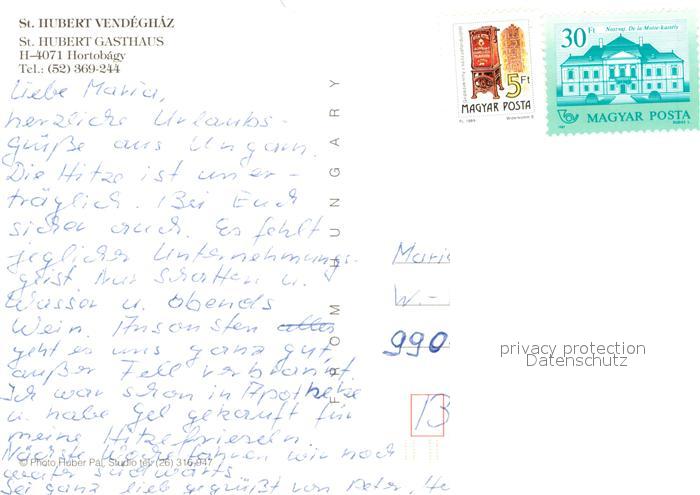 St. HUBERT VENDÉGHÁZ
St. HUBERT GASTHAUS
H-4071 Hortobágy
Tel.: (52) 369-244
Liebe Maria,
herzliche Urlaubs-
grüße aus Ungarn.
Die Hitze ist uner-
träglich. Bei Euch
sicher auch. Es fehlt
jeglicher Unternehmungs-
geist. Nur Schatten u.
Wasser u. abends
Wein. Ansonsten alles
geht es uns ganz gut,
außer Fell verbrannt.
Ich war schon in Apotheke
u. habe Gel gekauft für
meine Hitzefrieseln.
Nächste Woche fahren wir noch
weiter südwärts.
Sei ganz lieb gegrüßt von Peter,
© Photo Huber Pál, Studio tel: (26) 316-947
FROM HUNGARY
5Ft
MAGYAR POSTA
Nagytag. De la Motte-kastély
30 Ft
MAGYAR POSTA
Maria
W.-
990
13
privacy protection
Datenschutz